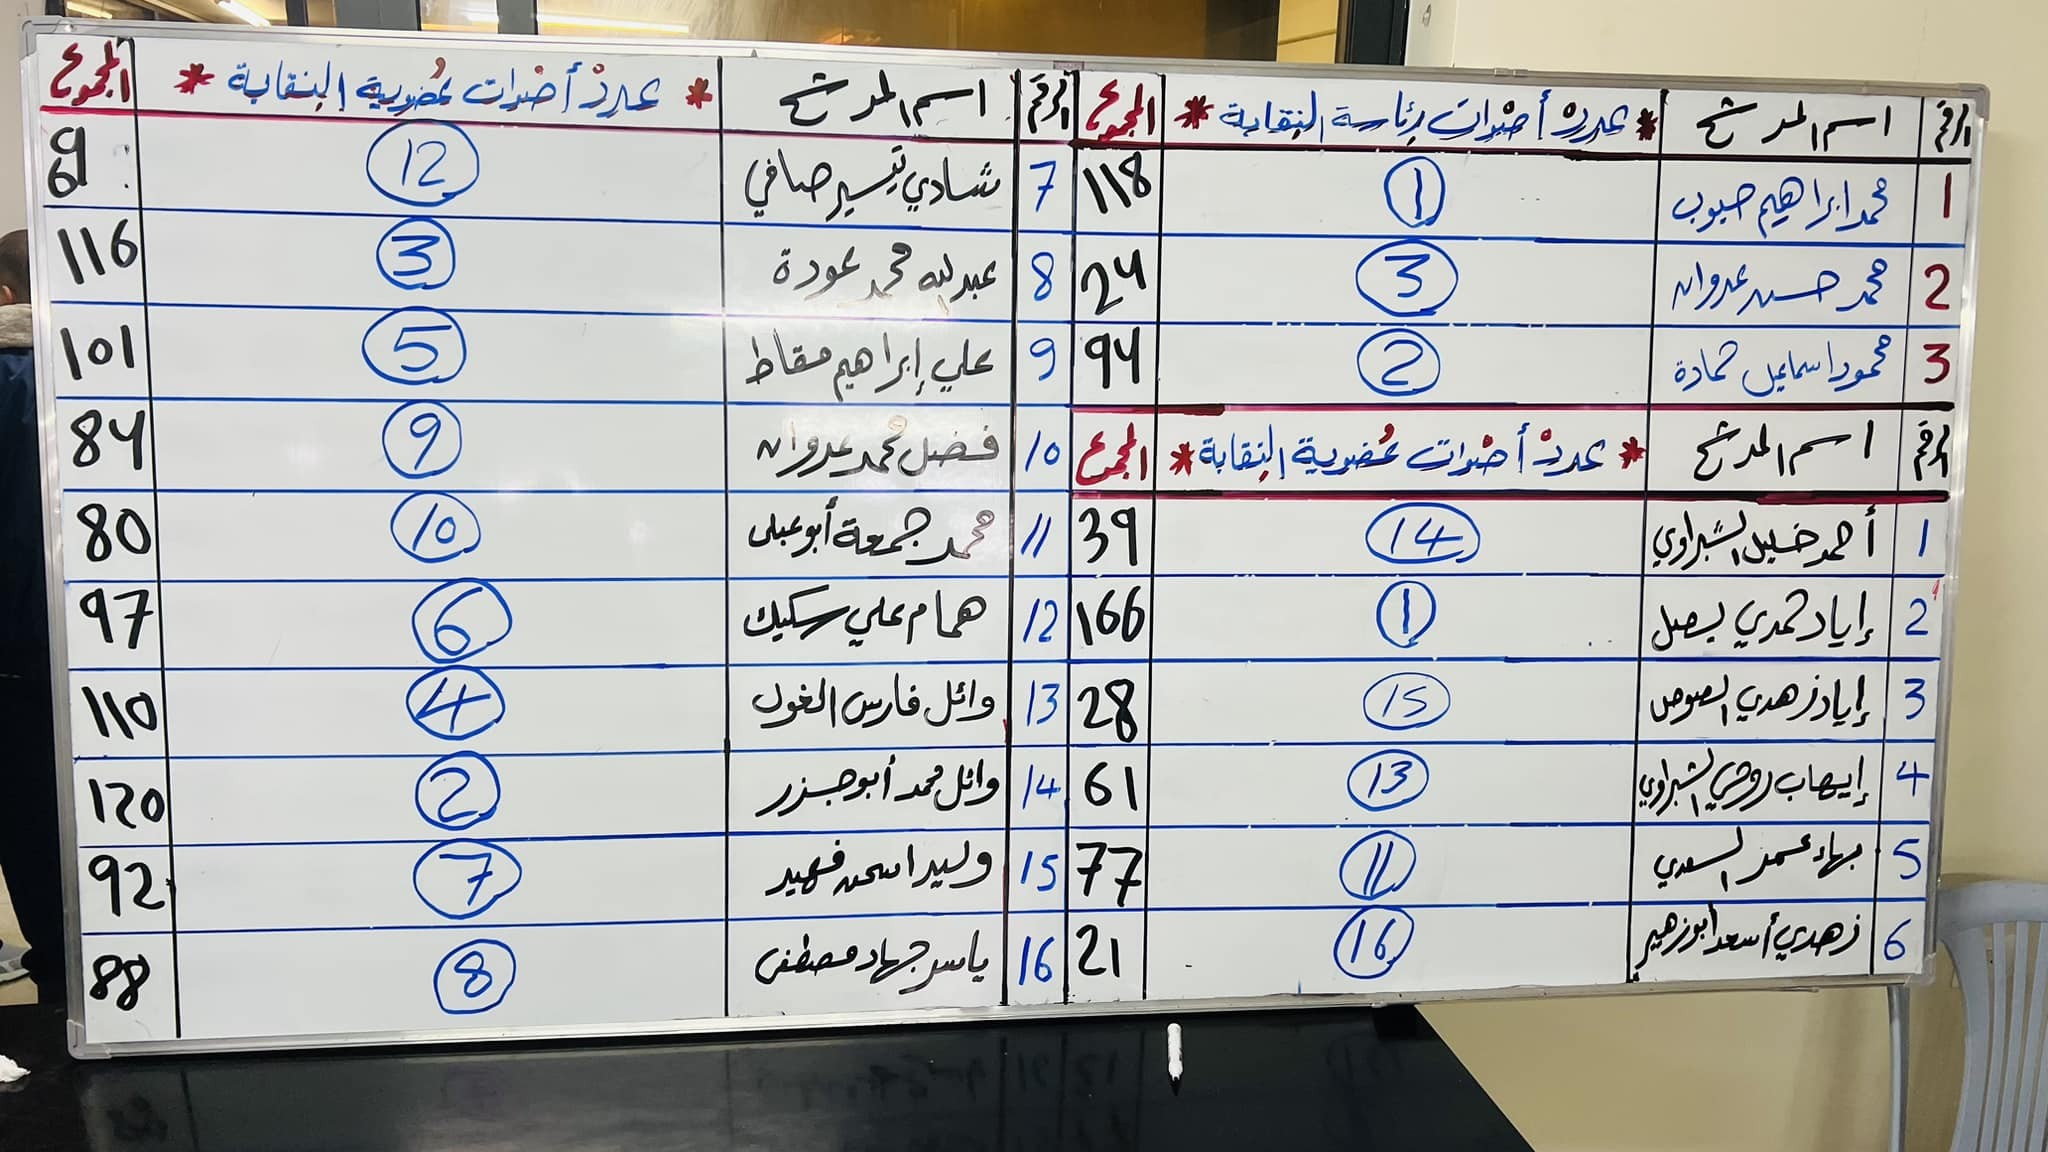 الرقم اسم المرشح * عدد أصوات رئاسة النقابة * المجموع
1 محمد ابراهيم حبوب 1 118
2 محمد حسن عدوان 3 24
3 محمود اسماعيل حمادة 2 94
الرقم اسم المرشح * عدد أصوات عضوية النقابة * المجموع
1 أحمد خليل الشبراوي 14 39
2 إياد حمدي بصل 1 166
3 إياد زهدي 15 28
4 إيهاب روحي الشبراوي 13 61
5 بهاء السعدي 11 77
6 زهدي أسعد أبو زهير 16 21
الرقم اسم المرشح * عدد أصوات عضوية النقابة * المجموع
7 شادي تيسير صافي 12
8 عبدالله محمد عودة 3 116
9 علي إبراهيم مقاط 5 101
10 فضل محمد عدوان 9 84
11 محمد جمعة أبو عبلى 10 80
12 همام علي سكيك 6 97
13 وائل فارس الغول 4 110
14 وائل محمد أبو جزر 2 120
15 وليد فهيد 7 92
16 ياسر جهاد مصطفى 8 88